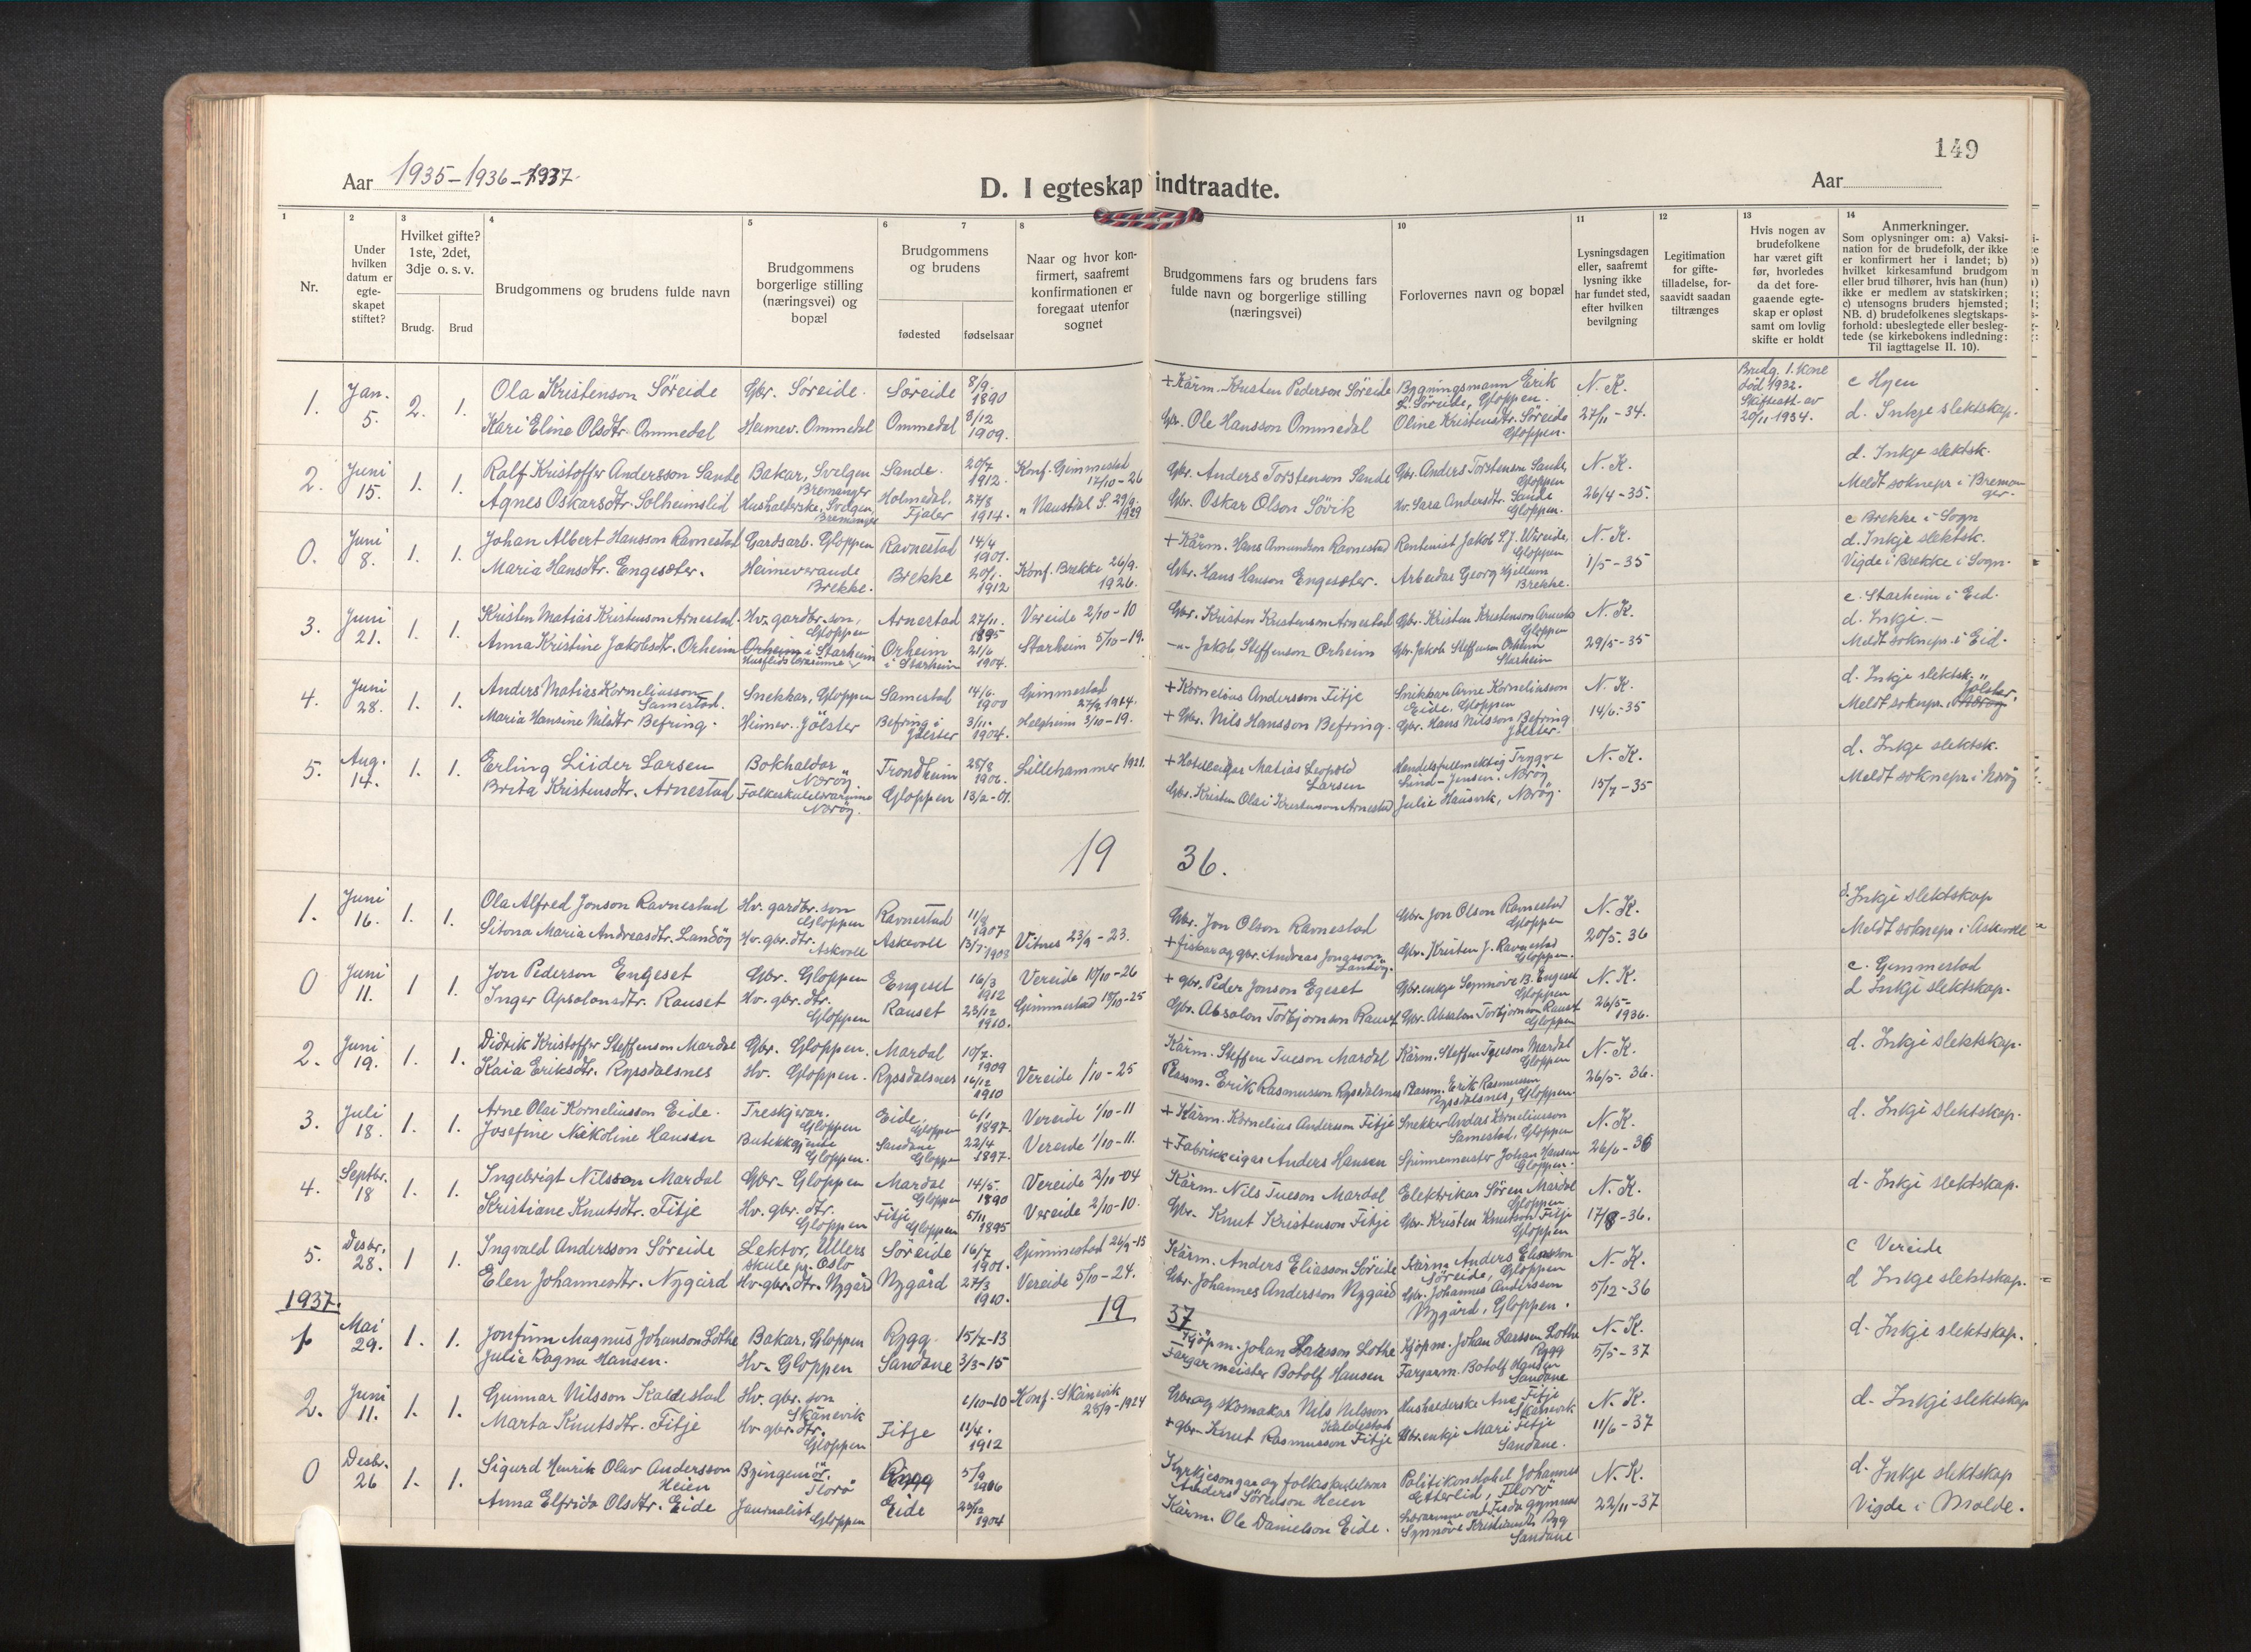 149
Aar 1935-1936-1937.
D. I egteskap indtraadte.
Aar
1
2
3
4
5
6
7
8
10
11
12
13
14
Nr.
Under hvilken datum er egte-skapet stiftet?
Hvilket gifte? 1ste, 2det, 3dje o. s. v.
Brudg.
Brud
Brudgommens og brudens fulde navn
Brudgommens borgerlige stilling (næringsvei) og bopæl
Brudgommens og brudens
fødested
fødselsaar
Naar og hvor kon-firmert, saafremt konfirmationen er foregaat utenfor sognet
Brudgommens fars og brudens fars fulde navn og borgerlige stilling (næringsvei)
Forlovernes navn og bopæl
Lysningsdagen eller, saafremt lysning ikke har fundet sted, efter hvilken bevilgning
Legitimation for gifte-tilladelse, for-saavidt saadan tiltrænges
Hvis nogen av brudefolkene har været gift før, hvorledes da det fore-gaaende egte-skap er opløst samt om lovlig skifte er holdt
Anmerkninger.
Som oplysninger om: a) Vaksi-nation for de brudefolk, der ikke er konfirmert her i landet; b) hvilket kirkesamfund brudgom eller brud tilhører, hvis han (hun) ikke er medlem av statskirken; c) utensogns bruders hjemsted; NB. d) brudefolkenes slegtskaps-forhold: ubeslegtede eller besleg-tede (se kirkebokens indledning: Til iagttagelse II. 10).
1. Jan. 5. 2. 1. Ola Kristenson Söreide Gbr. Söreide. Söreide 8/9. 1890 + Kårm. Kristen Pederson Söreide Bygningsmann Erik L. Söreide, Gloppen. N. K. Brudg. 1. kone död 1932. Skifteatt. av 20/11 1934. c Hyen
Kari Elina Olsdtr. Ommedal Heimev. Ommedal Ommedal 8/12 1909. Gbr. Ole Hansson Ommedal Oline Kristensdtr. Söreide Gloppen. 27/11-34. d. Inkje slektskap.
2. Juni 15. 1. 1. Ralf Kristoffer Andersson Sande Bakar, Svelgen Bremanger Sande. 20/7 1912. Konf. Gimmestad 17/10-26 Gbr. Anders Torstenson Sande Gbr. Anders Torstenson Sande, Gloppen N. K. d. Inkje slektsk.
Agnes Oskarsdtr. Solheimslid Hushalderske, Svelgen, Bremanger Holmedal. Fjaler 27/8 1914. " Naustdal S. 29/9. 1929 Gbr. Oskar Olson Sövik Hv. Sara Andersdtr. Sande Gloppen. 26/4-35. Meldt soknepr. i Bremanger.
0. Juni 8. 1. 1. Johan Albert Hansson Ravnestad Gardsarb. Gloppen Ravnestad 14/4 1901. + Kårm. Hans Amundson Ravnestad Rentenist Jakob S.J. Wereide, Gloppen N. K. c Brekke i Sogn d. Inkje slektsk.
Maria Hansdtr. Engesæter. Heimeverande Brekke. Brekke 20/1. 1912 Konf. Brekke 26/9. 1926. Gbr. Hans Hanson Engesæter. Arbeidar Georg Hjellum Brekke. 1/5-35 Vigde i Brekke i Sogn.
3. Juni 21. 1. 1. Kristen Matias Kristenson Arnestad. Hv. gardbr. son, Gloppen Arnestad 27/11. 1895 Vereide 2/10-10 Gbr. Kristen Kristenson Arnestad Gbr. Kristen Kristenson Arnestad Gloppen N. K. c. Starheim i Eid. d. Inkji.-
Anna Kristine Jakobsdtr. Orheim Orheim i Starheim Husflidslærarinne Orheim i Starheim 21/6 1904. Starheim 5/10-19. -"- Jakob Steffenson Orheim Gbr. Jakob Steffenson Orheim Starheim 29/5-35 Meldt soknepr. i Eid.
4. Juni 28. 1. 1. Anders Matias Korneliusson Samestad. Snekkar, Gloppen Samestad 14/6. 1900 Gimmestad 27/9 1914. + Kornelius Andersson Fitje Snikkar Arne Korneliusson Eide, Gloppen N. K. d. Inkje slektsk.
Maria Hansine Nilsdtr Befring. Heimev. Jölster Befring i Jölster 3/11. 1904. Helgheim 3/10-19. + Gbr. Nils Hansson Befring. Gbr. Hans Nilsson Befring Jölster. 14/6.-35 Meldt soknepr. i Jölster.
5. Aug. 14. 1. 1. Erling Liider Larsen Bokhaldar Nærög Trondheim 28/8 1906. Lillehammer 1921. + Hotelleigar Matias Leopold Larsen Handelsfullmektig Trygve Lind-Jensen. Nærög N. K. d. Inkje slektsk.
Brita Kristensdtr. Arnestad Folkeskulelærarinne Nærög. Gloppen 13/2-01. Gbr. Kristen Olai Kristenson Arnestad Julie Hausvik, Nærög. 15/7-35 Meldt soknepr. i Nærög
19 36.
1. Juni 16. 1. 1. Ola Alfred Jonson Ravnestad Hv. gardbr. son Gloppen Ravnestad 11/9 1907 Gbr. Jon Olson Ravnestad Gbr. Jon Olson Ravnestad Gloppen N. K. d. Inkji slektskap
Sitona Maria Andreasdtr. Landöy Hv. gbr. dtr. Askvoll Askvoll 13/7 1903 Vitnes 23/9-23. + fiskar og gbr. Andreas Jonasson Landöy. Gbr. Kristen J. Ravnestad Gloppen. 20/5. 36 Meldt soknepr. i Askvoll
0 Juni 11. 1 1. Jon Pederson Engeset Gbr. Gloppen Engeset 16/3 1912 Vereide 10/10-26 + gbr. Peder Jonson Egeset Gbr.enkje Synnöve B. Engeset Gloppen N. K. c. Gimmestad
Inger Apsolonsdtr. Rauset Hv. gbr. dtr. Gloppen Rauset 23/12 1910. Gimmestad 18/10-25 Gbr. Absalon Torbjornson Rauset Gbr. Absalon Torbjornson Rauset Gloppen 26/5- 1936. d Inkji slektskap.
2. Juni 19. 1. 1. Didrik Kristoffer Steffenson Mardal Gbr. Gloppen. Mardal 10/7. 1909 Kårm. Steffen Tueson Mardal Kårm. Steffen Tueson Mardal Gloppen N. K. d. Inkji slektskap.
Kaia Eriksdtr. Ryssdalsnes Hv. Gloppen. Ryssdalsnes 16/12 1910 Vereide 1/10-25 Plassm. Erik Rasmusson Ryssdalsnes Plassm. Erik Rasmusson Ryssdalsnes, Gloppen. 26/5-36.
3. Juli 18. 1. 1. Arne Olai Korneliusson Eide. Treskjerar. Gloppen Eide, Gloppen 6/1 1897. Vereide 1/10-11 + Kårm. Kornelius Andersson Fitje Snekker Anders Korneliusson Samestad, Gloppen N. K. d. Inkji slektskap.
Josefine Nikoline Hansen Butekkgjente Gloppen. Sandane Gloppen 22/4 1897. Vereide 1/10-11. + Fabrikkeigar Anders Hansen Spinnemeister Johan Hansen Gloppen. 26/6-36
4. Septbr. 18 1. 1. Ingebrigt Nilsson Mardal Gbr. Gloppen Mardal Gloppen 14/5. 1890 Vereide 2/10-04 Kårm. Nils Tueson Mardal Elektrikar Sören Mardal Gloppen N. K. d. Inkji slektskap.
Kristiane Knutsdtr. Fitje Hv. gbr. dtr. Gloppen Fitje Gloppen 5/11 1895 Vereide 2/10-10. Gbr. Knut Kristenson Fitje Gbr. Kristen Knutson Fitje Gloppen 17/8-36.
5. Desbr. 28. 1 1. Ingvald Andersson Söreide Lektor, Ullers skule pr. Oslo Söreide 16/7 1901. Gimmestad 26/9-15 Kårm. Anders Eliasson Söreide Kårm. Anders Eliasson Söreide, Gloppen N. K. c Vereide
Elen Johannesdtr. Nygård Hv. gbr. dtr. Nygård Nygård 27/3 1910. Vereide 5/10-24. Gbr. Johannes Andersson Nygård Gbr. Johannes Andersson Nygård, Gloppen. 5/12-36 d Inkje slektskap.
1937. 19 37
1. Mai 29. 1. 1. Jonfinn Magnus Johanson Lothe Bakar, Gloppen Rygg 15/7-13 Kjöpm. Johan Larsson Lothe Kjöpm. Johan Larsson Lothe Rygg N. K. d. Inkji slektskap.
Julie Ragna Hansen. Hv. Gloppen Sandane 3/3-15 Fargarmeister Botolf Hansen Fargarm. Botolf Hansen Sandane 5/5-37
2. Juni 11. 1. 1. Gunnar Nilsson Kaldestad Hv. gbr. son Skånevik 6/10-10 Konf. Skånevik 28/9-1924 Gbr. og skomakar Nils Nilsson Kaldestad Hushalderske Ane Fitje Skånevik N. K. d. Inkji slektskap
Marta Knutsdtr. Fitje Hv. gbr. dtr. Gloppen Fitje 11/4. 1912 + gbr. Knut Rasmusson Fitje Gbr.enkje Mari Fitje Sandane. 11/6-37
0 Desbr. 26 1. 1. Sigurd Henrik Olav Andersson Heien Byingeniör. Florö Rygg 5/9 1906 Kyrkjesongar og folkeskulelærar Anders Sörenson Heien Politikonstabel Johannes Etterlid, Florö N. K. d. Inkje slektskap
Anna Elfrida Olsdtr. Eide Journalist Gloppen Eide 23/12 1904 Kårm. Ole Danielson Eide. Lærarinne ved Firda gymnas Synnöve Kristiansdtr. Rygg Sandane 22/11-37 Vigde i Molde.